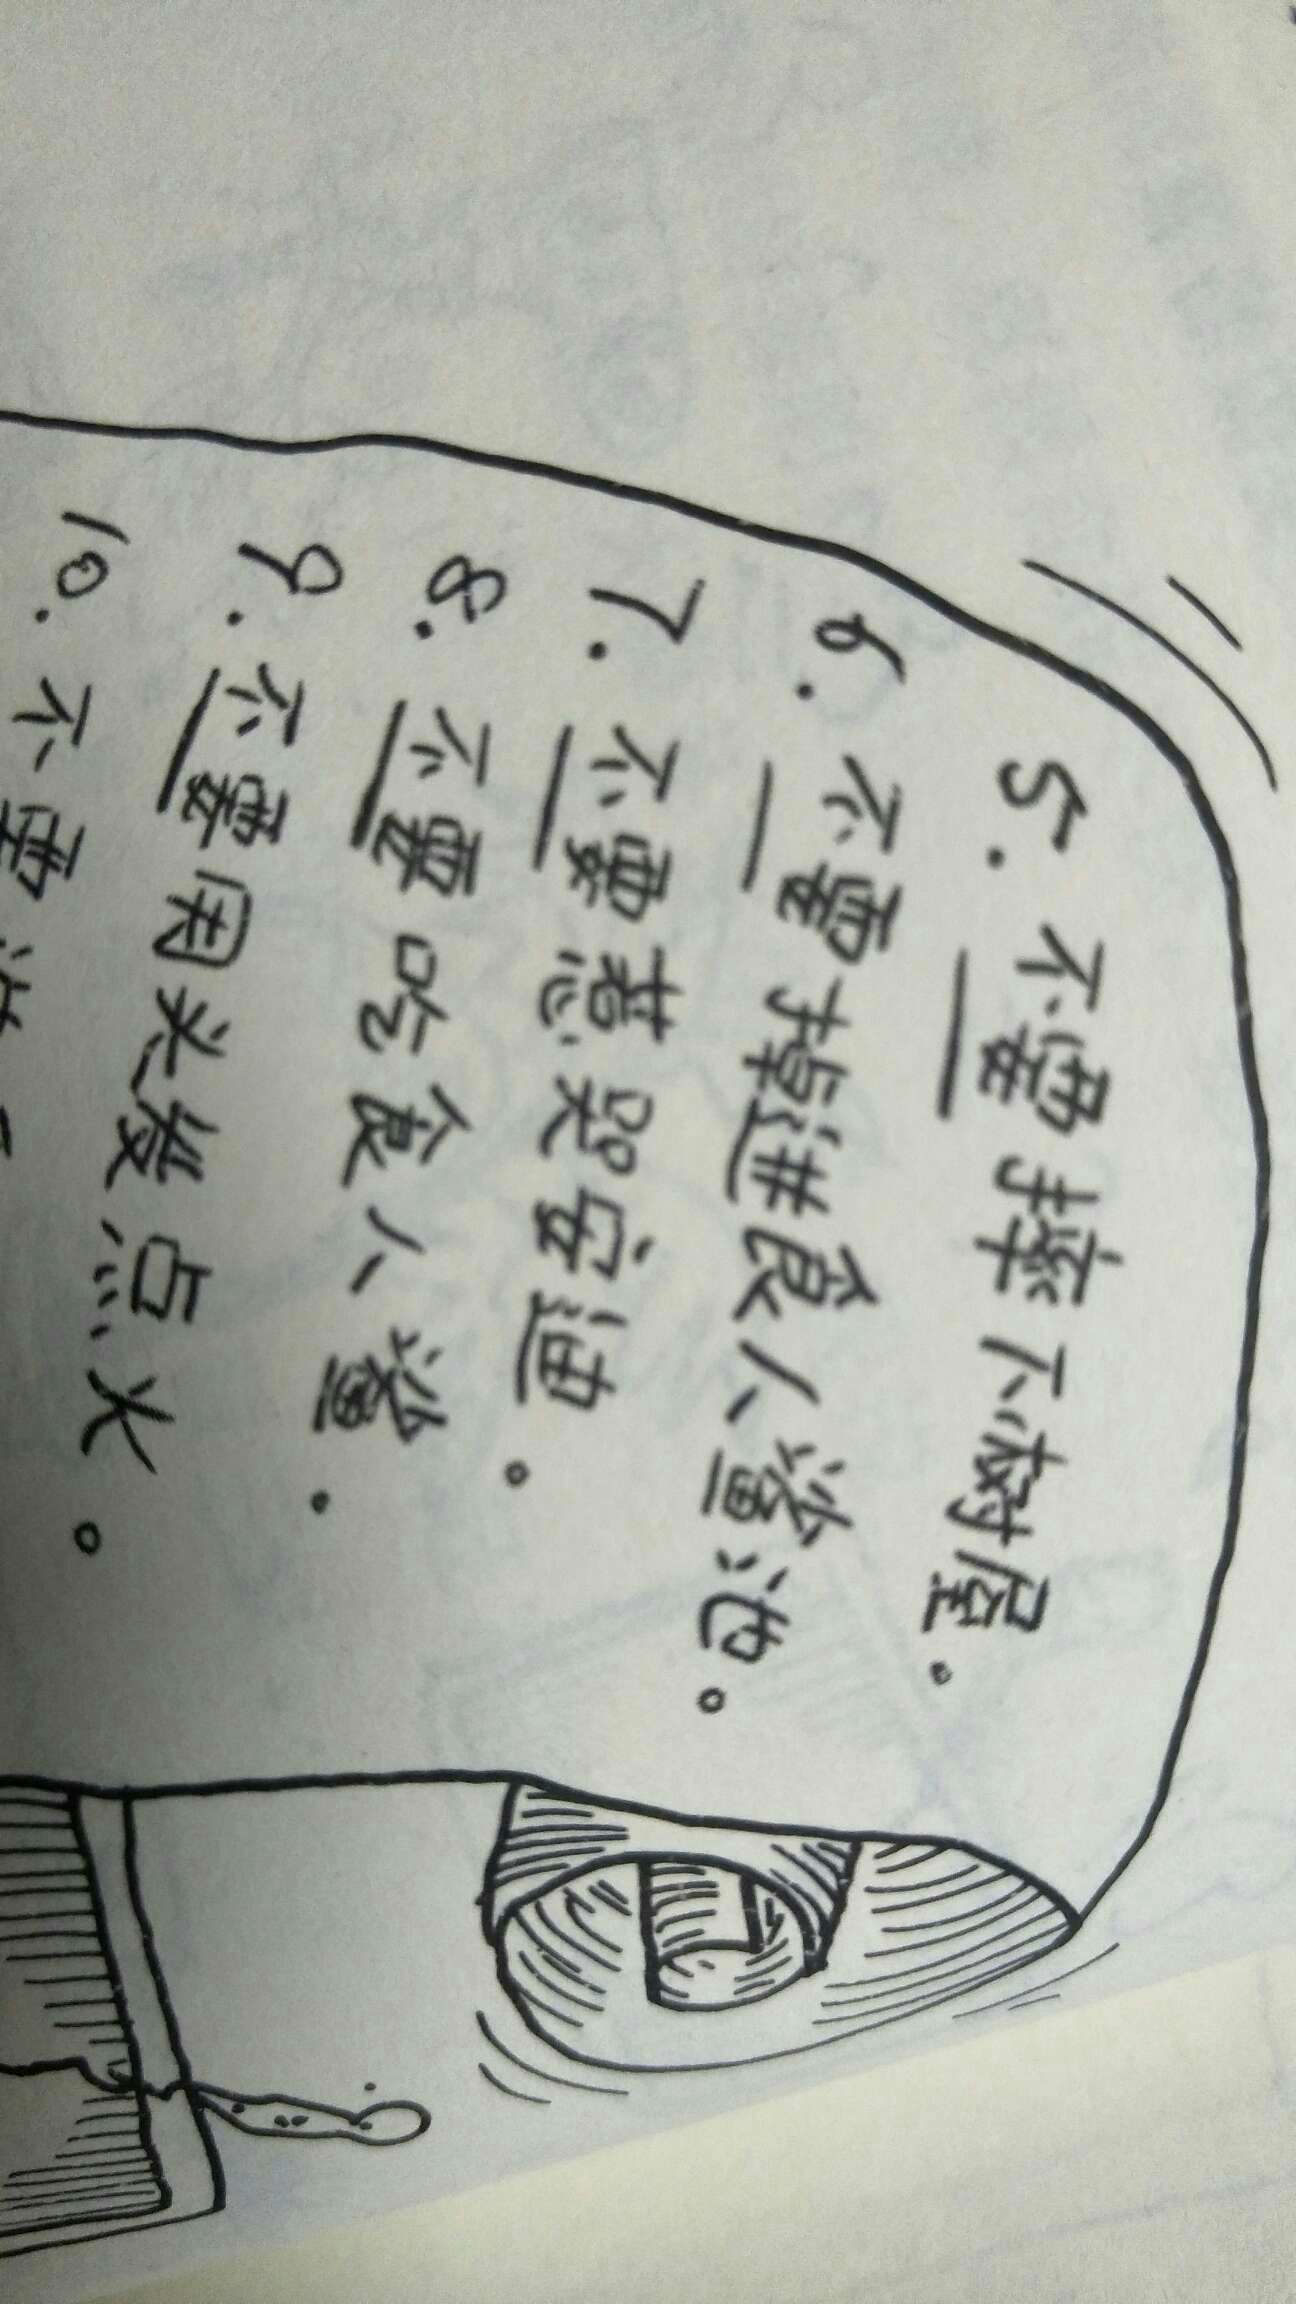 5. 不要摔下树屋。
6. 不要掉进食人鲨池。
7. 不要惹哭安迪。
8. 不要吃食人鲨。
9. 不要用头发点火。
10. 不要